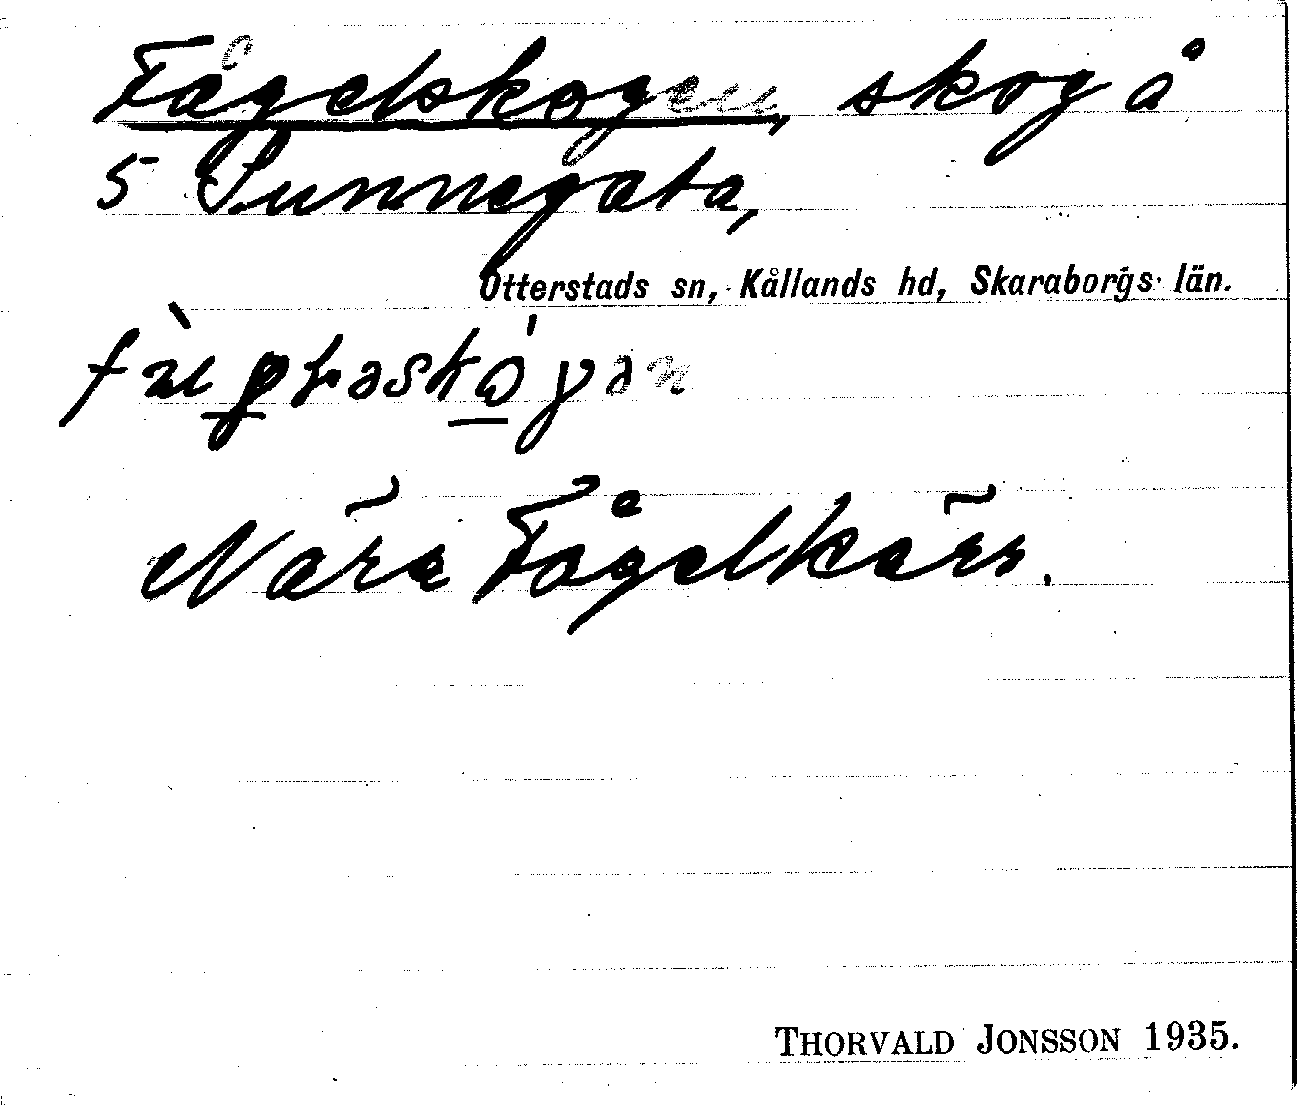 Fågelskogen, skog å
5 Sunnegata,
Otterstads sn, Kållands hd, Skaraborgs län.
Nära Fågelkärr.
THORVALD JONSSON 1935.